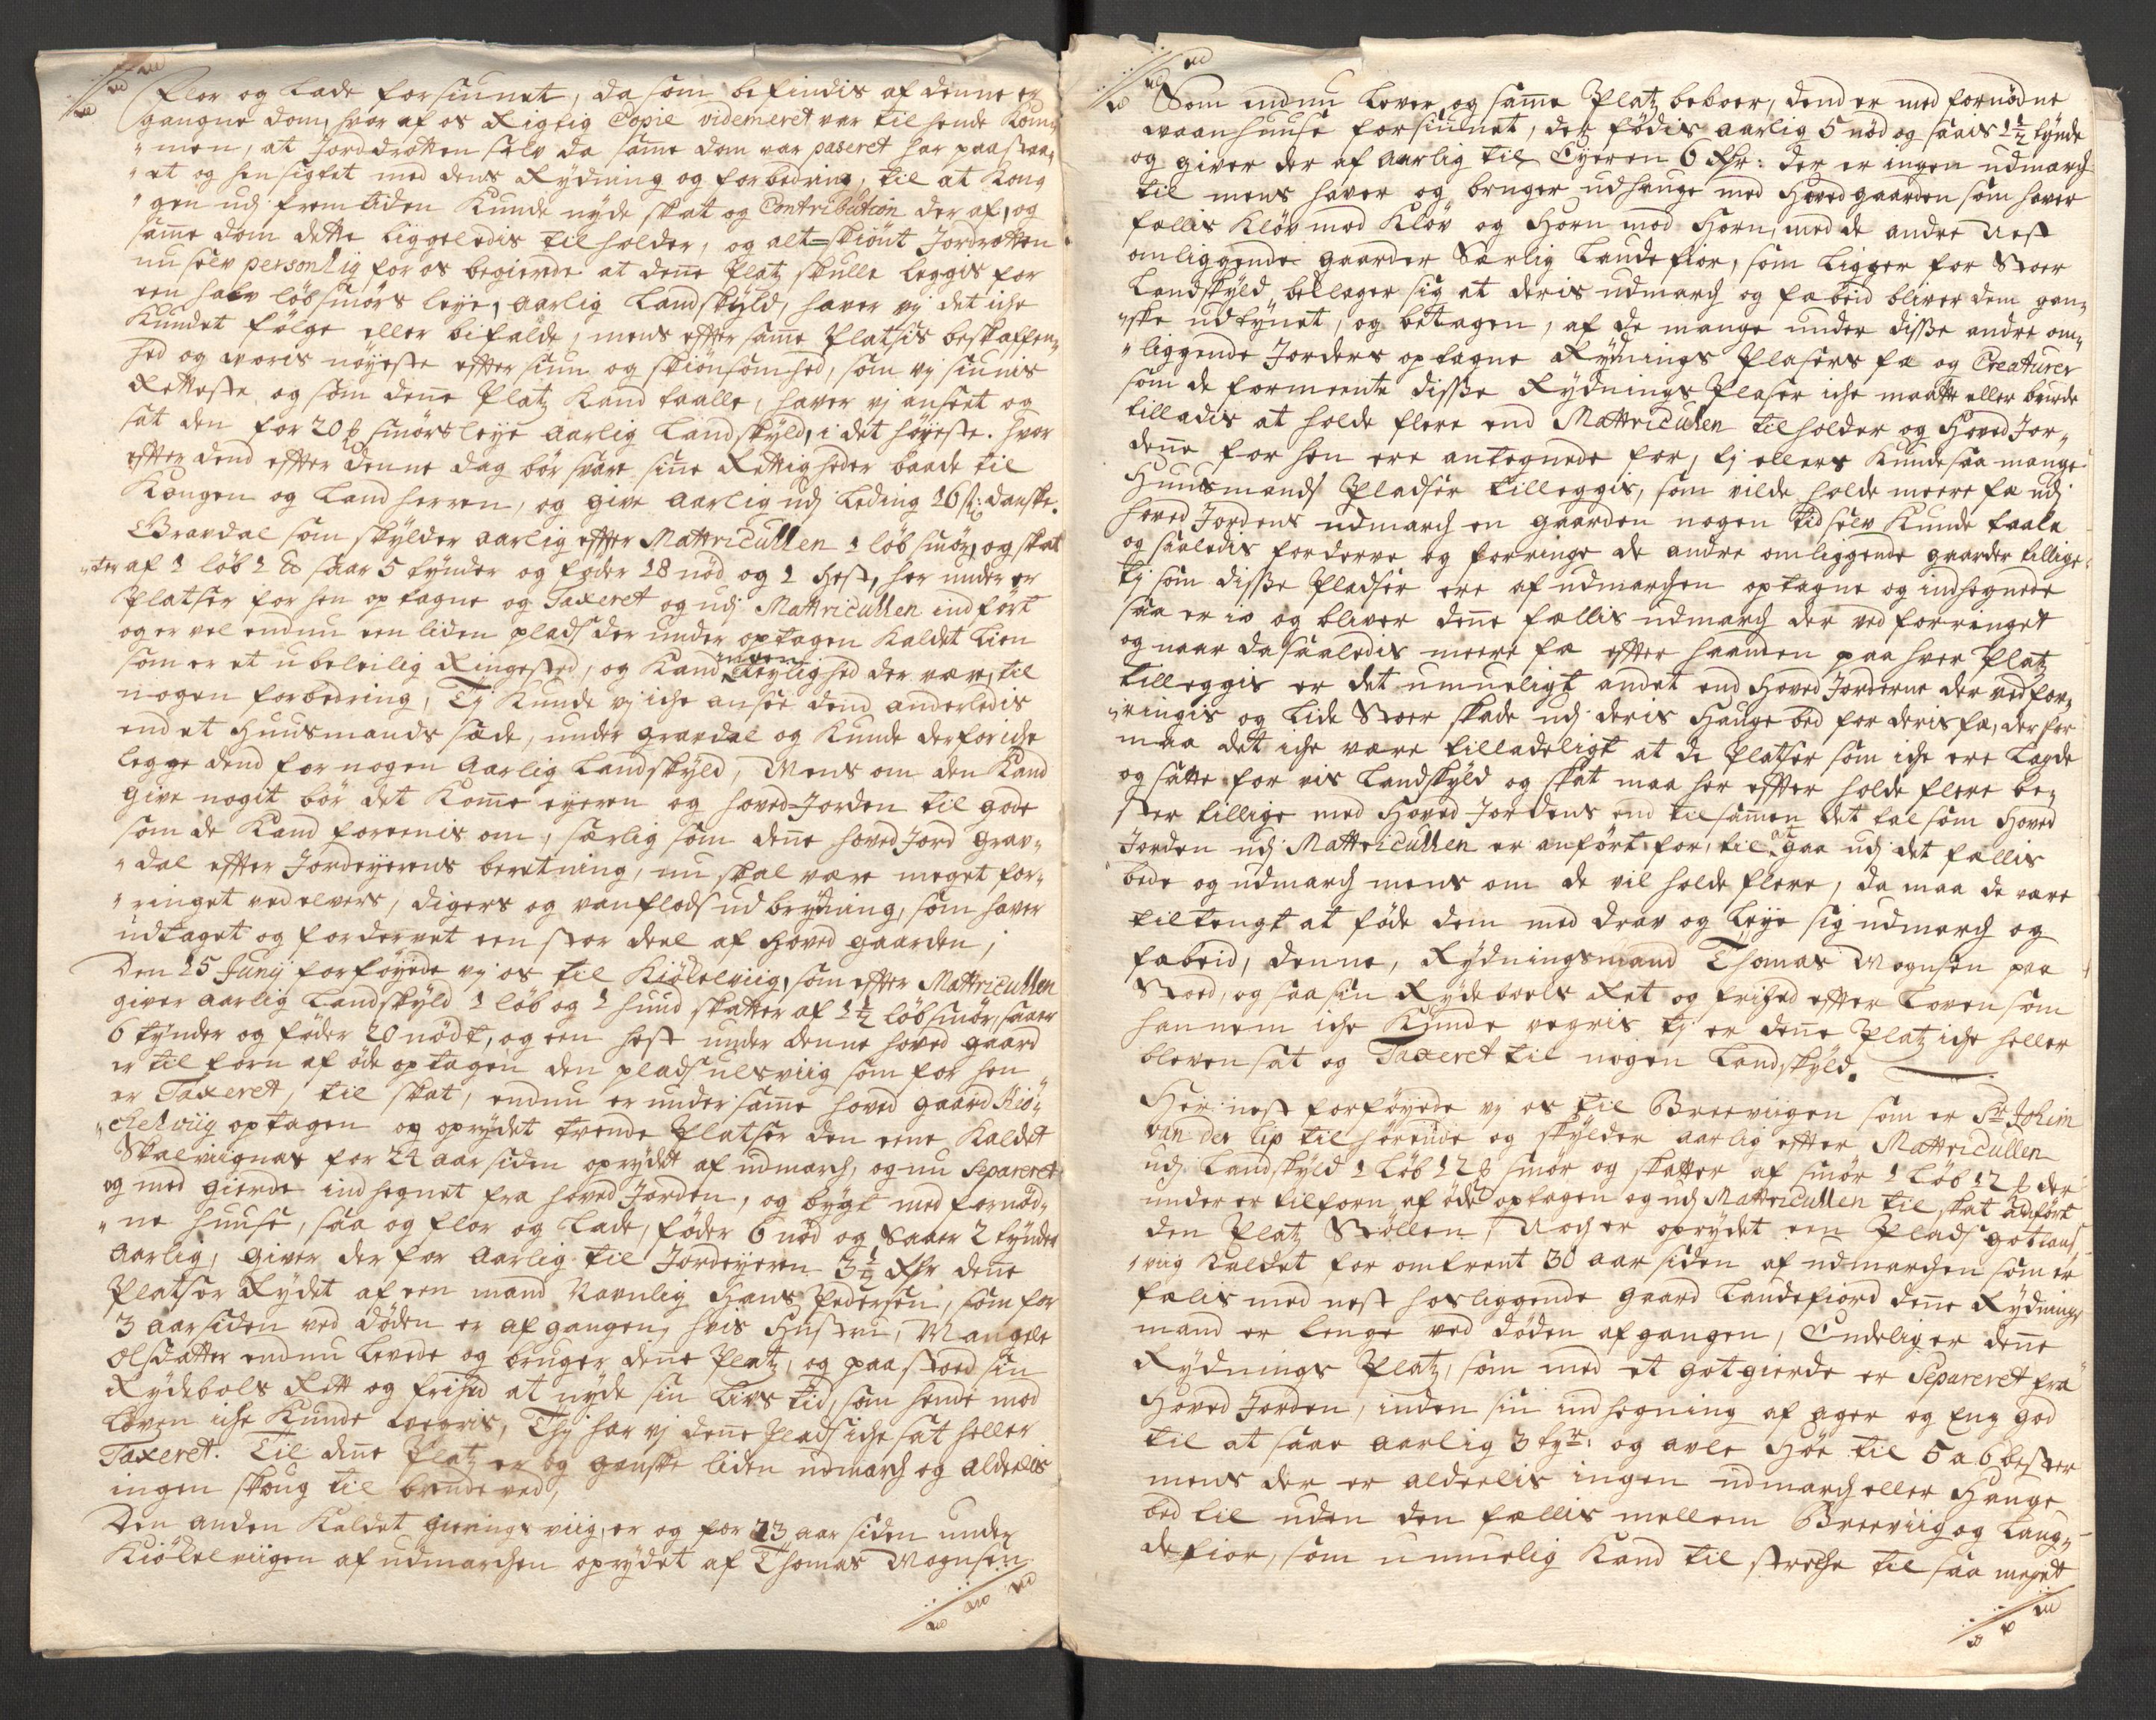 Flor og Lade forsiunet, da som befindis af denne er
gangne dom, hvor af os Rigtig Copie videmeret var til hende kom„
„men, at Jorddrotten selv da same dom var paseret har paa staa„
„et og hen sigtet med dens Rydning og forbedring, til at Kong
„gen udj fremtiden Kunde nyde skat og Contribution der af, og
same dom dette liggeledis tilholder, og alt=skiönt Jordrotten
nu selv personlig for os begierde at dene Platz skulle leggis for
een halv löb smörs leye, aarlig Landskyld, haver vj det iche
Kundet fölge eller bifalde, mens effter same Platsis beskaffen„
hed og woris nöyeste effter siun og skiönsomhed, som vj siunis
Retteste, og som dene Platz Kand taalle, haver vj anseet og
sat den for 20 ß smörs leye aarlig Landskyld, i det höyeste. hvor
effter dend effter denne dag bör svare sine Rettigheder baade til
Kongen og Landherren, og give aarlig udj Leding 16 ß: danske.
Gravdal som skylder aarlig effter Mattricullen 1 löb smör, og skat
„ter af 1 löb 1 ß saar 5 tynder og foder 18 nöd og 1 hest, her under er
Platser for hen op tagne og Taxeret og udj Mattricullen indfört
og er vel endnu een liden plads der under optagen Kaldet Lien
som er et ubeleilig Ringested, og Kand ingen leylighed der være, til
nogen forbedring, Tj Kunde vj iche ansee dend anderledis
end et huusmands sæde, under gravdal og Kunde derfor iche
legge dend for nogen aarlig Landskyld, Mens om den Kand
give nogit bör det Kome eyeren og hoved=Jorden til gode
som de Kand foreenis om, særlig som dene hoved Jord grav„
„dal effter Jordeyerens beretning, nu skal være meget for„
„ringet ved elvers, digers og vanflods udbrydning, som haver
udtaget og fordervet een stor deel af hoved gaarden,
Den 15 Junij forföyede vj os til Kiökelviig, som effter Mattricullen
giver aarlig Landskyld 1 löb og 1 huud skatter af 1½ löb smör, saaer
6 tynder og föder 20 nödt, og een hest under denne hoved gaard
er til forn af öde optagen den plads ulsviig som for hen
er Taxeret, til skat, endnu er under same hoved gaard Kiö„
„chelviig optagen og oprydet tvende Platser den eene Kaldet
Skalviignas for 24 aar siden oprydet af udmarch, og nu Separeret
og med gierde indhegnet fra hoved Jorden, og bygt med fornöd„
„ne huuse, saa og flor og Lade, föder 6 nöd og Saaer 2 tynder
aarlig, giver der for aarlig til Jordeyeren 3½ Rdr dene
Platser Rydet af een mand Navnlig Hans Pedersen, som for
3 aar siden ved döden er afgangen, hvis Hustru, Mangele
Olsdatter endnu levede og bruger dene Platz, og paa stoed sin
Rydebols Rett og frihed at nyde sin Livs tid, som hende mod
Loven iche Kunde wegris, Thj har vj dene Plads iche sat heller
Taxeret. Til dene Platz er og ganske liden udmarch og alderlis
ingen skoug til brendeved,
Den anden Kaldet gierings viig, er og for 23 aar siden under
Kiökelviigen af udmarchen oprydet af Thomas Mognsen
Som endnu lever og same Platz beboer, dend er med fornödne
waanhuuse forsiunet, der födis aarlig 5 nöd og saais 1½ tynde
og giver der af aarlig til Eyeren 6 Rdr: der er ingen udmarch
til mens haver og bruger udhauge med hoved gaarden som haver
fellis Klöv mod Klöv og Horn mod Horn, med de andre nest
omliggende gaarder særlig Landefior, som ligger for stoer
Landskyld, beklager sig at deris udmarch og fæbeid bliver dem gan„
„ske udtynet, og betagen, af de mange under disse andre om„
„liggende Jorders optagne Rydnings Plasers fæ og Creaturer
som de formeente disse Rydnings Plaser iche maatte eller burde
tilladis at holde flere end Mattriculen tilholder og hoved Jor„
dene for hen ere antegnede for, tj ellers Kunde saa mange
Huusmands Pladser tilleggis, som vilde holde meere fæ udj
hoved Jordens udmarch en gaarden nogen tid selv Kunde taale
og saaledis forderve og forringe de andre omliggende gaarder tillige.
tj som disse Pladser ere af udmarchen optagne og indhegnede
saa er io og bliver dene fællis udmarch der ved forringet
og naar da saaledis meere fæ effter haanden paa hver Platz
tilleggis er det umueligt andet end hoved Jorderne der ved for„
„ringis og lide stoer skade udj deris hauge bed for deris fæ, der for
maa det iche være tilladeligt at de Platser som iche ere lagde
og satte for vis Landskyld og skat maa her effter holde flere be„
ster tillige med hoved Jordens end tilsamen det tal som hoved
Jorden udj Mattricullen er anfört for, til at gaa udj det fællis
bede og udmarch mens om de vil holde flere, da maa de være
tiltengt at föde dem med drav og leye sig udmarch og
fæbeid, denne, Rydningsmand Thomas Mognsen paa
stoed, og saa sin Rydebols Ret og frihed effter Loven som
hannem iche Kunde negris tj er dene Platz iche heller
bleven sat og Taxeret til nogen Landskyld.
Her nest forföyede vj os til Breeviigen som er Sr Johim
van der Lip tilhörende og skylder aarlig effter Mattricullen
udj Landskyld 1 Löb 12 ß smör og skatter af smör 1 Löb 12 ß der
under er tilforn af öde optagen og udj Mattricullen til skat anfört
den Platz Stöllen, Noch er oprydet een Plads gotlaus
„viig Kaldet for omtrent 30 aar siden af udmarchen som er
fælis med nest hosliggende gaard Landefiord dene Rydnings
mand er lenge ved döden afgangen, Endelig er dene
Rydnings Platz, som med et gotgierde er Separeret fra
Hoved Jorden, inden sin indhegning af ager og Eng god
til at saae aarlig 3 tyr: og avle Höe til 5 a 6 bester
mens der er alderlis ingen udmarch eller Hauge
bed til uden den fællis mellem Breeviig og Lang„
defior, som umuelig Kand til streche til saa meget